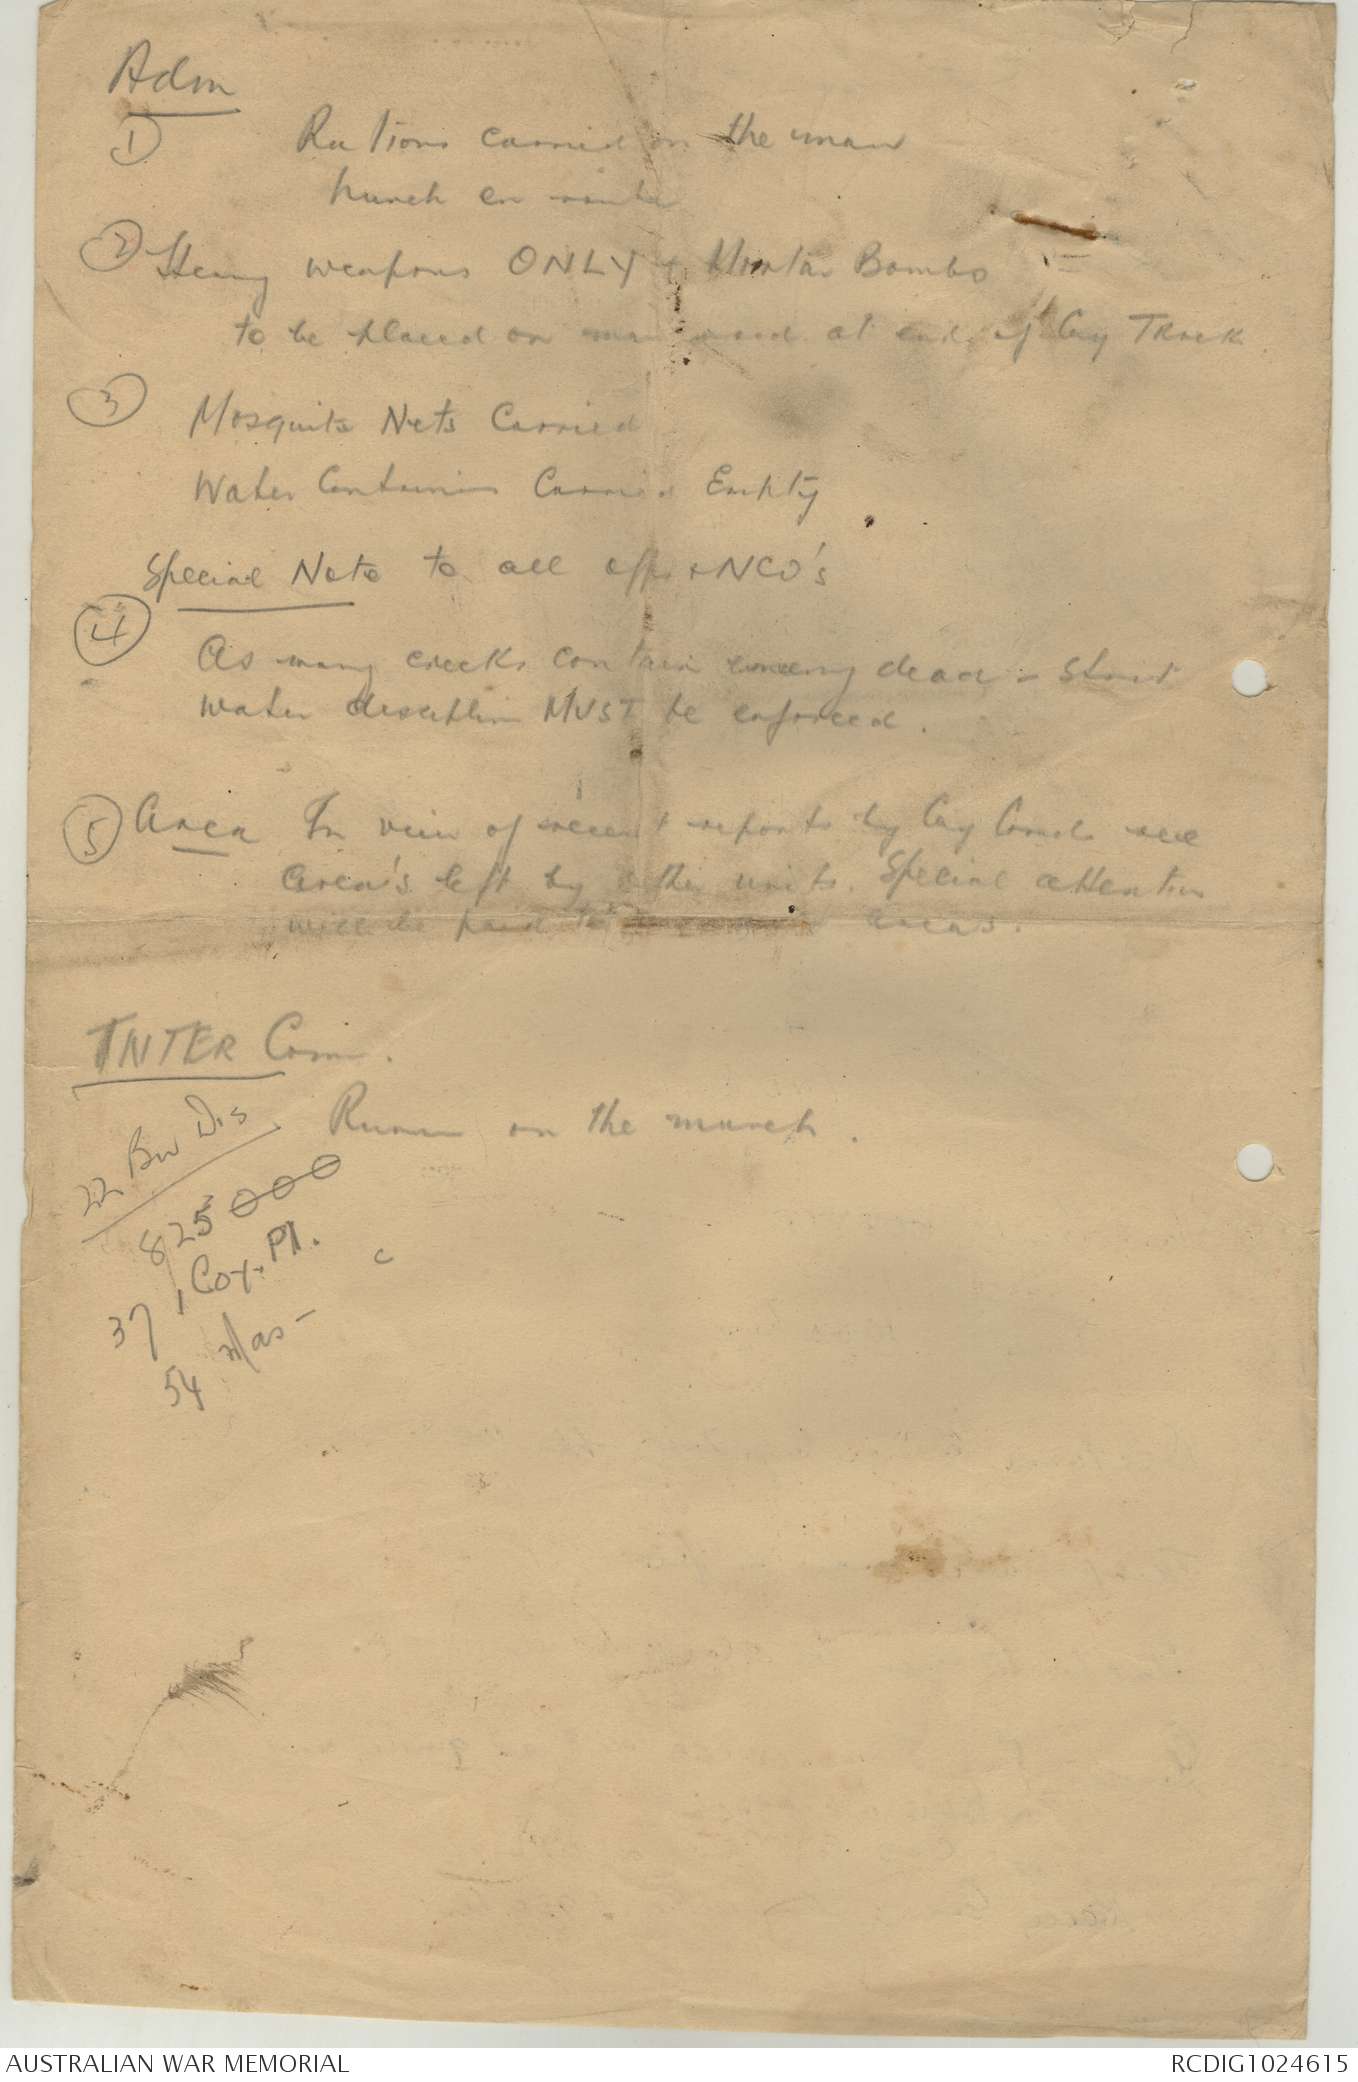 Adm
1) Rations carried on the man
Lunch en route
2) Heavy weapons ONLY + Mortar Bombs
to be placed on main road at end of Coy Track
3) Mosquito Nets Carried
Water Containers Carried Empty
Special Note to all offrs + NCO's
4) As many creeks contain enemy dead - strict
Water discipline MUST be enforced.
5) Area In view of recent reports by Coy Comds
Area's left by other units. Special attention
will be paid to areas.
INTER Comm.
Runner on the march.
22 Bw Dis
825000
37, Coy. Pl.
54
AUSTRALIAN WAR MEMORIAL
RCDIG1024615